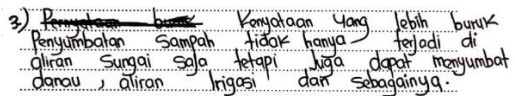 3) Kenyataan yang lebih buruk
Penyumbatan sampah tidak hanya terjadi di
aliran sungai saja tetapi juga dapat menyumbat
danau, aliran Irigasi dan sebagainya.